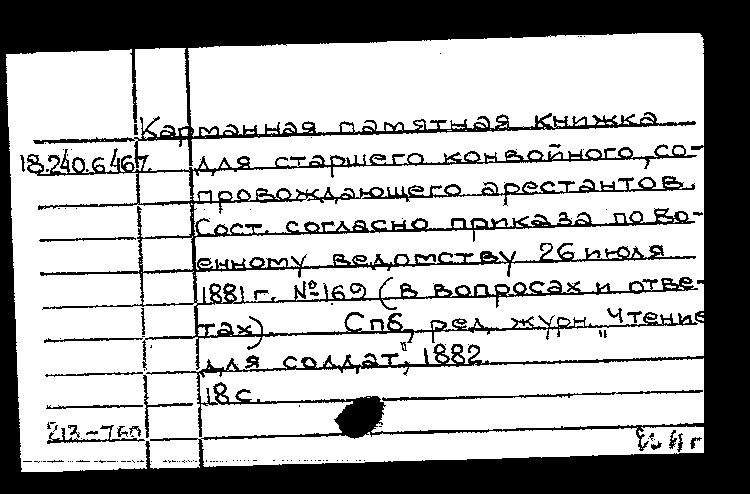 Карманная памятная книжка
18.240.6.467. для старшего конвойного, со-
провождающего арестантов.
Сост. согласно приказа по во-
енному ведомству 26 июля
1881 г. №169 (в вопросах и отве-
тах). Спб, ред. журн. "Чтение
для солдат", 1882.
18 с.
213-760